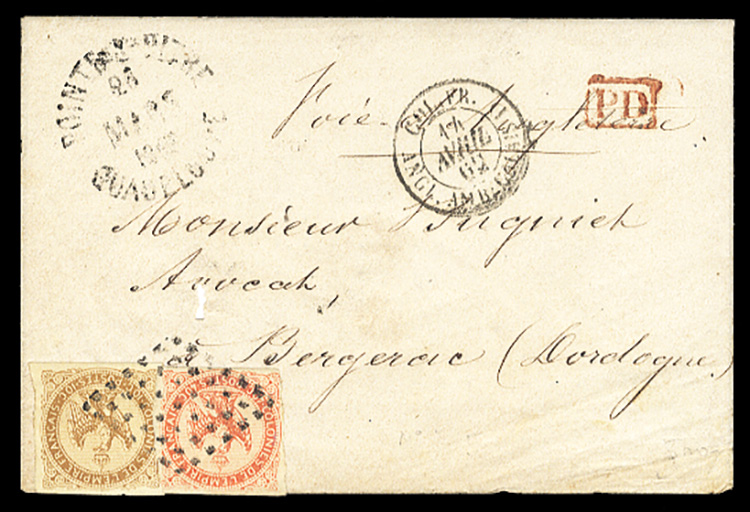 POINTE A PITRE
28
MARS
GUADELOUPE
Voie Angleterre
COL. FR. ANGL. AMB. CALAIS
14
AVRIL
62
PD
Monsieur Bugniet
Avocat,
Bergerac (Dordogne)
COLONIES DE L'EMPIRE FRANÇAIS POSTES
COLONIES DE L'EMPIRE FRANÇAIS POSTES